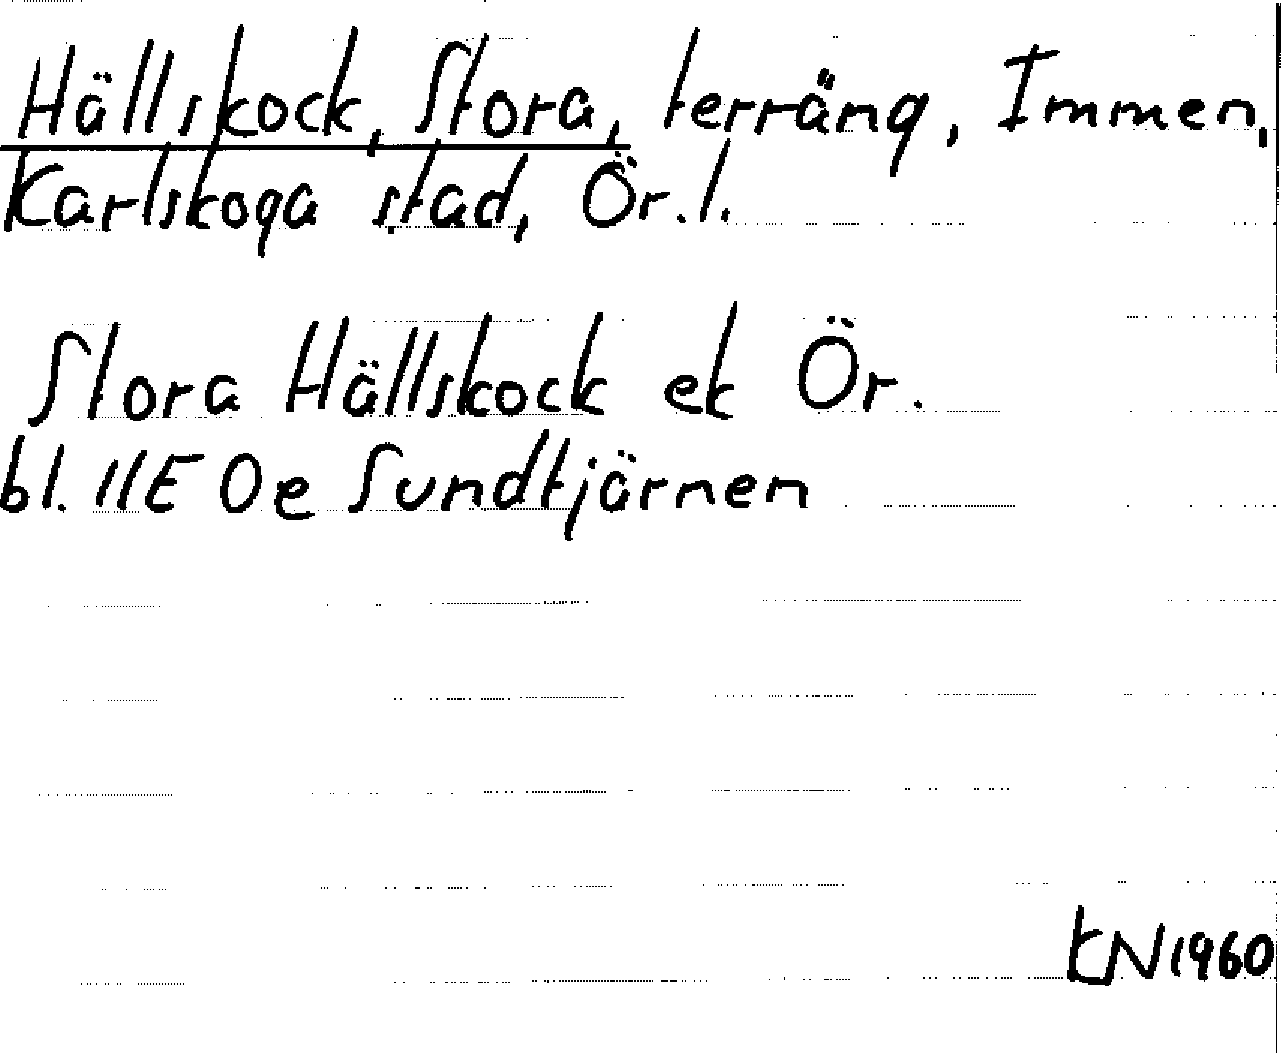 Hällskock, Stora, terräng, Immen,
Karlskoga stad, Ör.l.
Stora Hällskock ek Ör.
bl. 11E 0e Sundtjärnen
KN1960